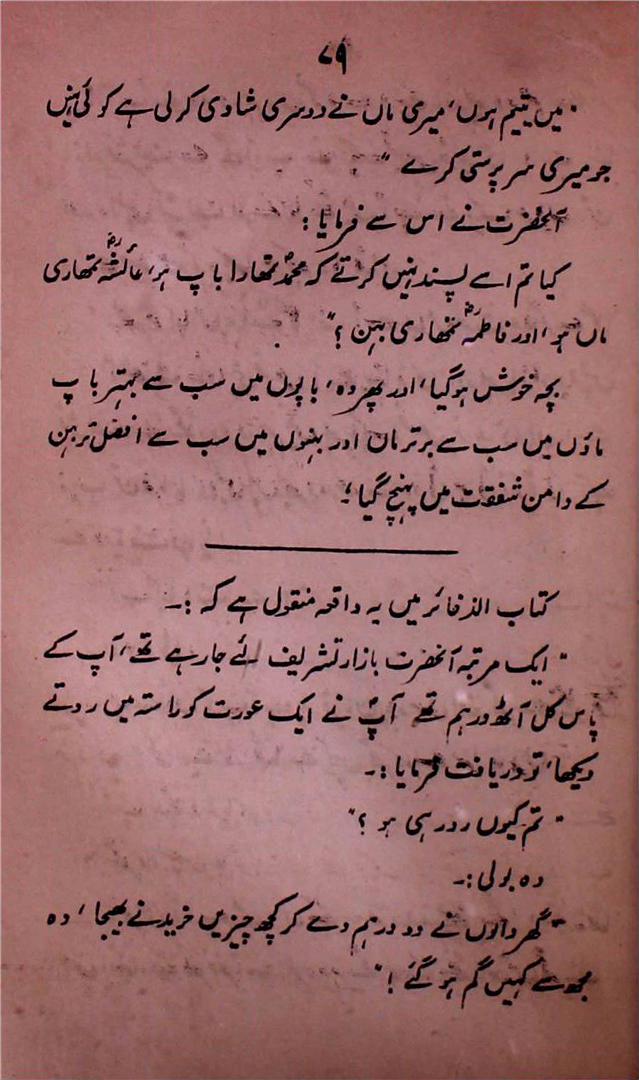 ۷۹
"میں یتیم ہوں، میری ماں نے دوسری شادی کرلی ہے کوئی نہیں
جو میری سرپرستی کرے"
آنحضرت نے اس سے فرمایا:
کیا تم اسے پسند نہیں کرتے کہ محمدؐ تمھارا باپ ہو، عائشہؓ تمھاری
ماں ہو، اور فاطمہؓ تمھاری بہن؟"
بچہ خوش ہوگیا، اور پھر وہ، باپوں میں سب سے بہتر باپ
ماؤں میں سب سے برتر ماں اور بہنوں میں سب سے افضل تر بہن
کے دامن شفقت میں پہنچ گیا!
کتاب الذخائر میں یہ واقعہ منقول ہے کہ:۔
"ایک مرتبہ آنحضرت بازار تشریف لئے جارہے تھے، آپ کے
پاس کل آٹھ درہم تھے آپؐ نے ایک عورت کو راستہ میں روتے
دیکھا، تو دریافت فرمایا:۔
"تم کیوں رو رہی ہو؟"
وہ بولی:۔
"گھر والوں نے دو درہم دے کر کچھ چیزیں خریدنے بھیجا، وہ
مجھ سے کہیں گم ہو گئے!"